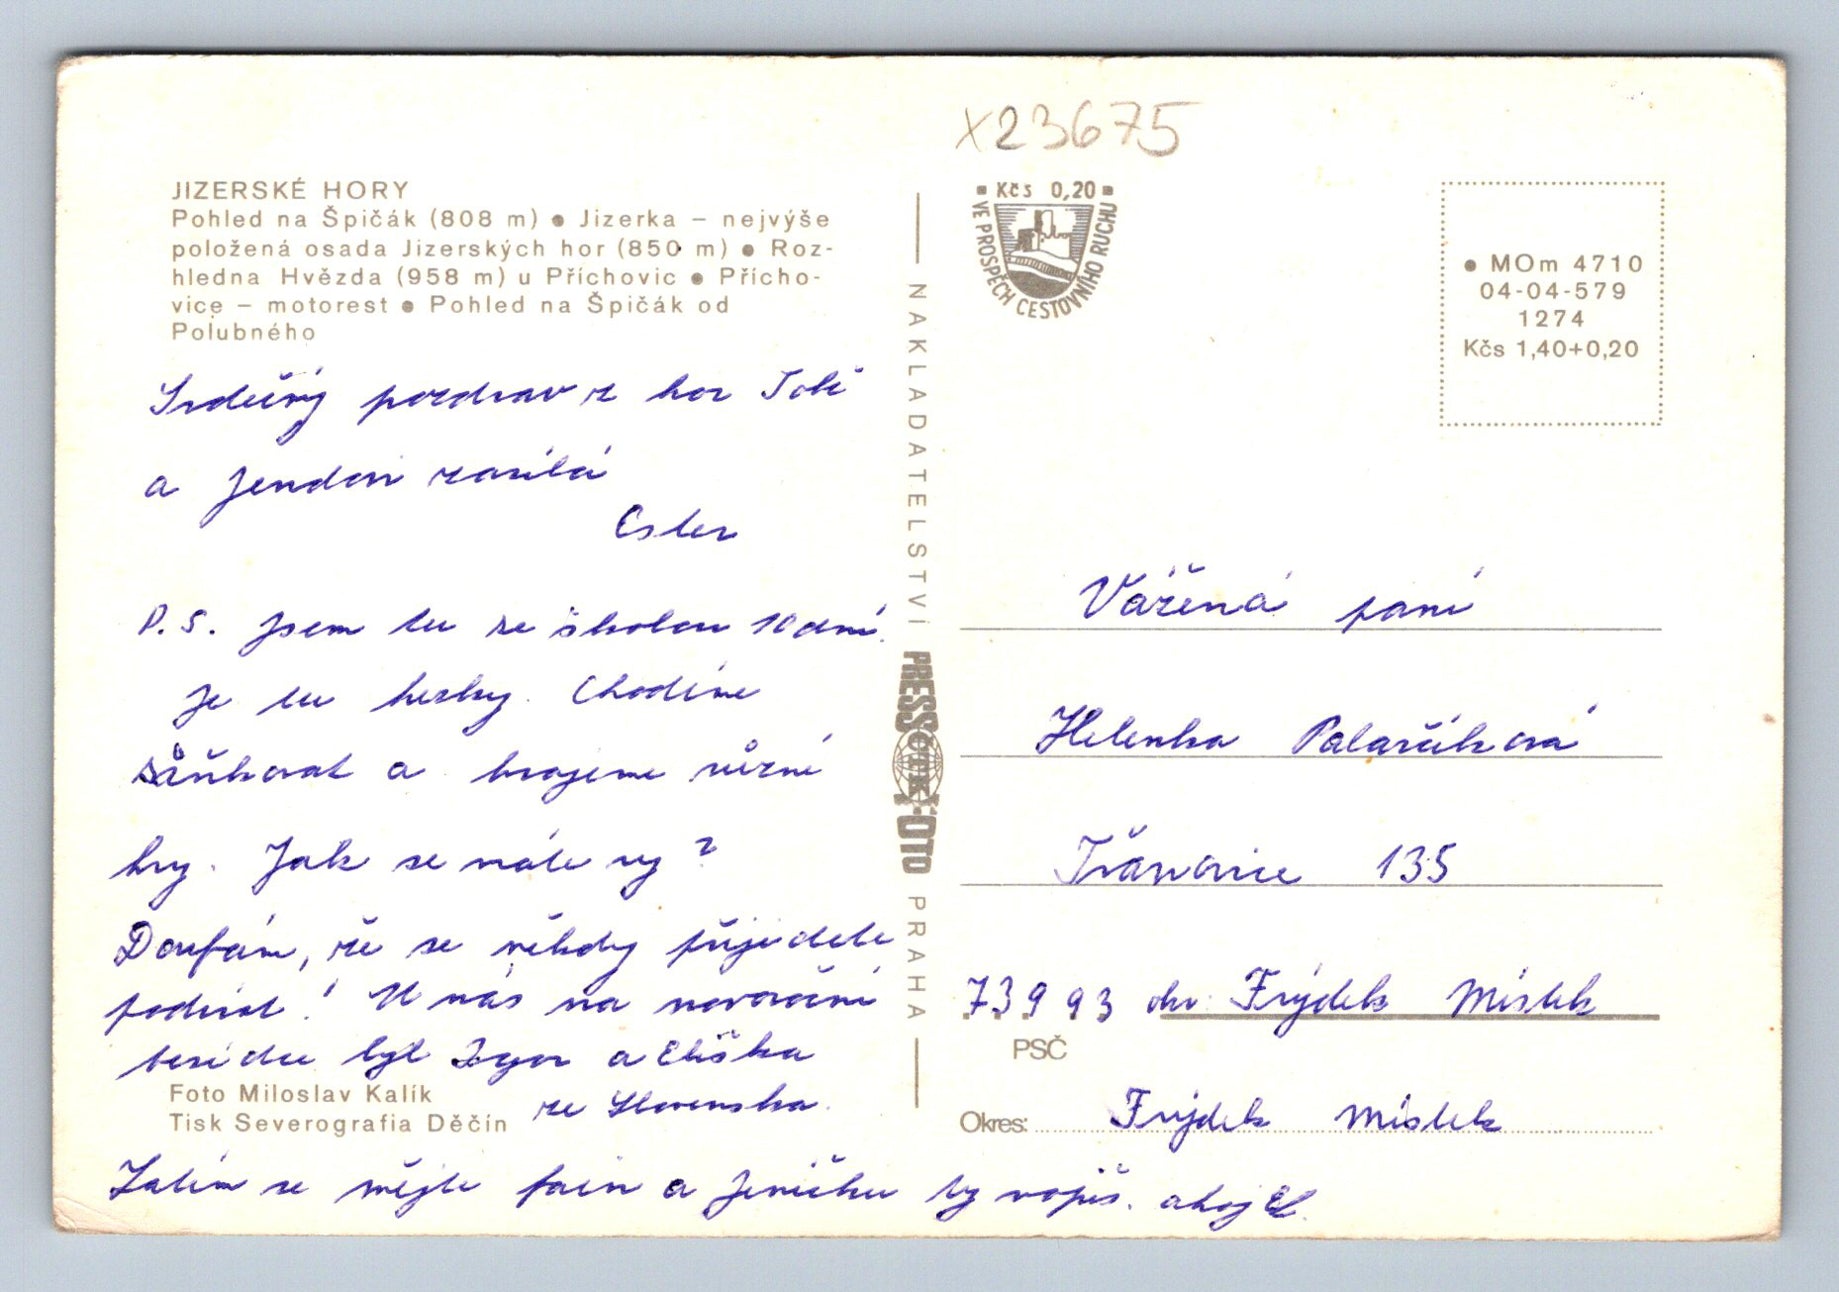 x23675
JIZERSKÉ HORY
Pohled na Špičák (808 m) ● Jizerka – nejvýše
položená osada Jizerských hor (850 m) ● Roz-
hledna Hvězda (958 m) u Příchovic ● Přícho-
vice – motorest ● Pohled na Špičák od
Polubného
Srdečný pozdrav z hor Tobě
a Jendovi zasílá
Ester
P.S. Jsem tu se školou 10 dní.
Je tu hezky. Chodíme
sáňkovat a hrajeme různé
hry. Jak se máte vy?
Doufám, že se někdy přijedete
podívat! U nás na novoroční
besídce byl Igor a Eliška
ze Slovenska.
Foto Miloslav Kalík
Tisk Severografia Děčín
Zatím se mějte fain a Jeníčku ty napiš. ahoj
NAKLADATELSTVÍ PRESSFOTO PRAHA
ČTK
Kčs 0,20
VE PROSPĚCH CESTOVNÍHO RUCHU
● MOm 4710
04-04-579
1274
Kčs 1,40+0,20
Vážená paní
Helenka Palarčíková
Třanovice 135
73993 okr. Frýdek Místek
PSČ
Okres: Frýdek Místek